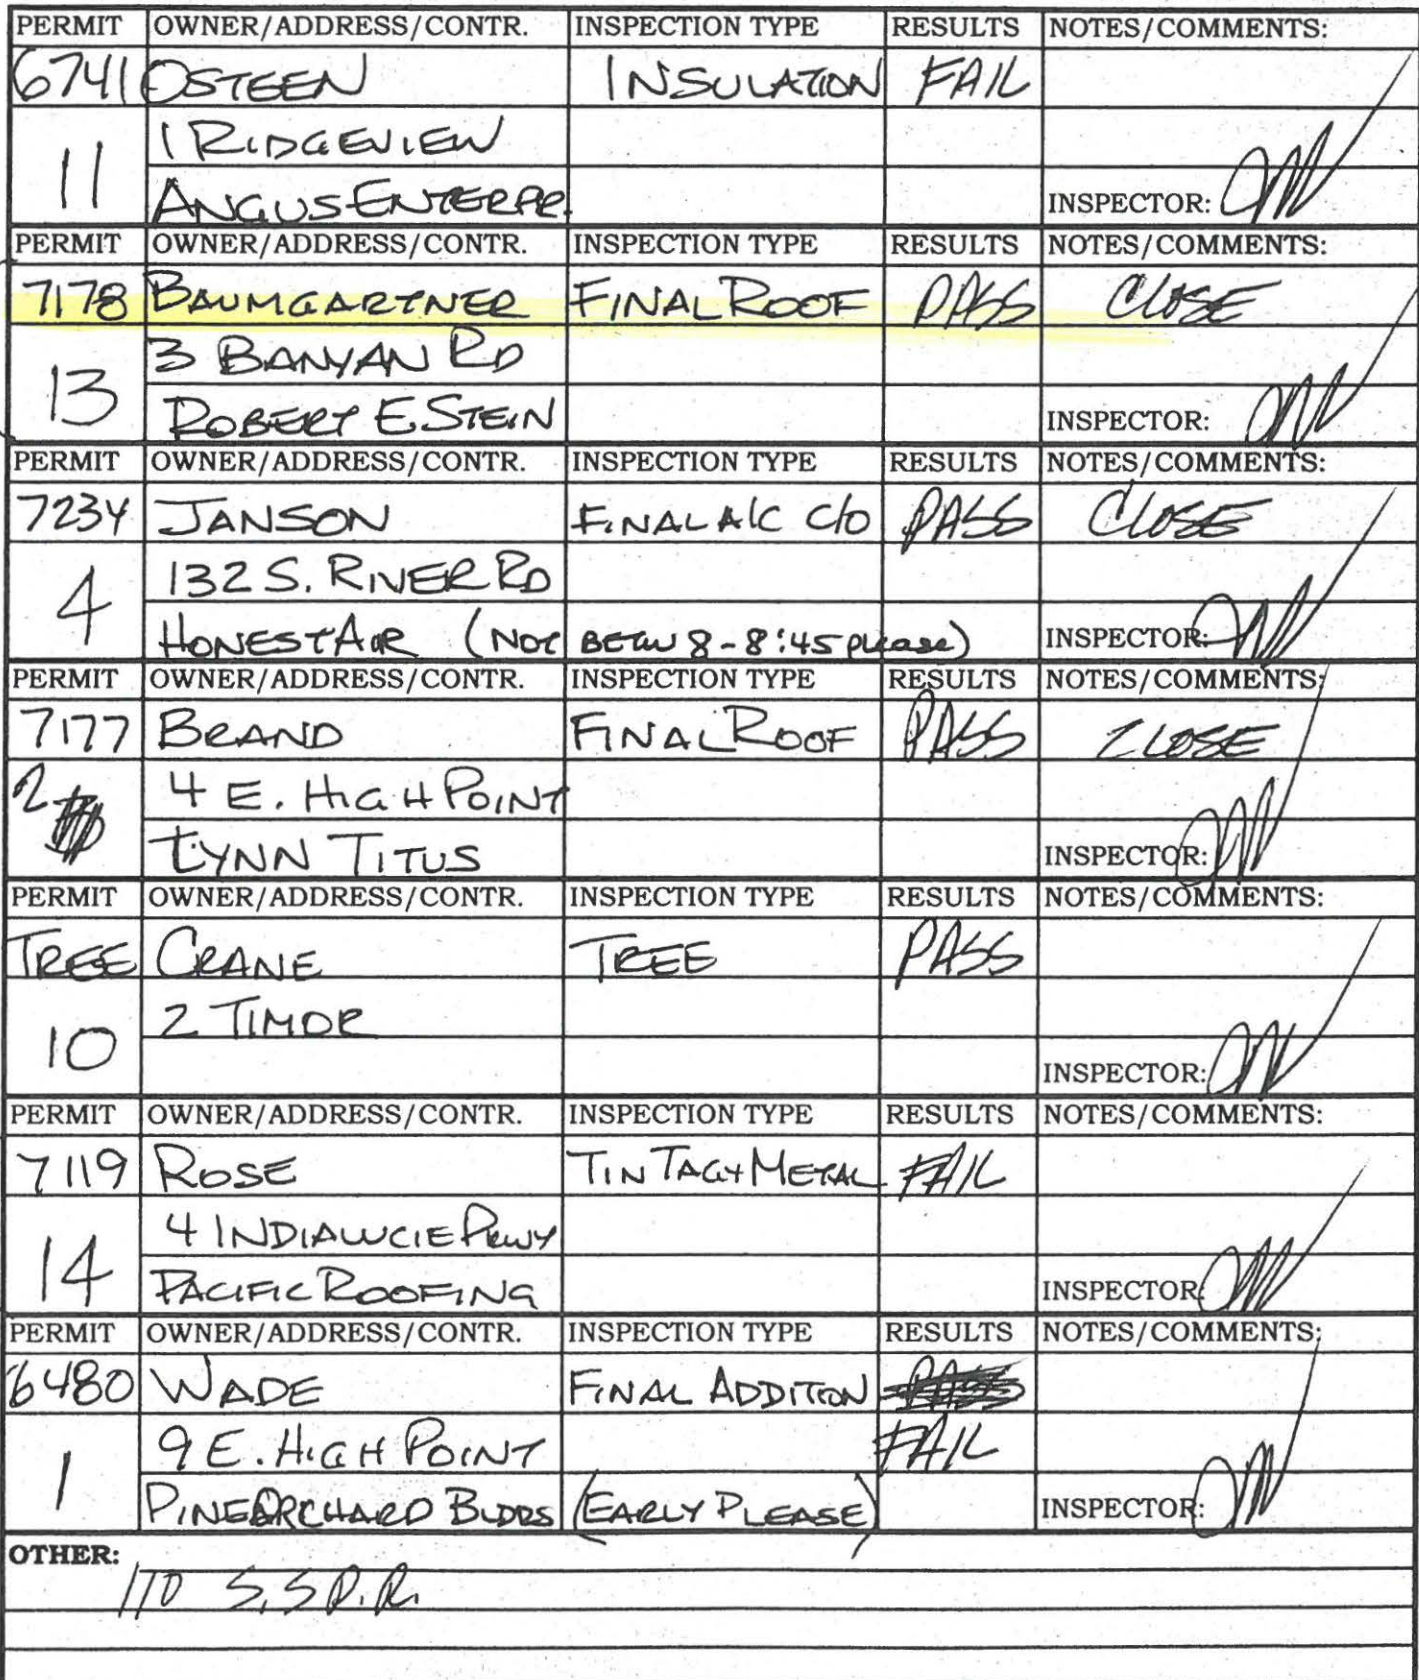 PERMIT OWNER/ADDRESS/CONTR. INSPECTION TYPE RESULTS NOTES/COMMENTS:
6741 OSTEEN INSULATION FAIL
1 RIDGEVIEW
11
ANGUS ENTERPR. INSPECTOR:
PERMIT OWNER/ADDRESS/CONTR. INSPECTION TYPE RESULTS NOTES/COMMENTS:
7178 BAUMGARTNER FINAL ROOF PASS CLOSE
3 BANYAN RD
13
ROBERT E STEIN INSPECTOR:
PERMIT OWNER/ADDRESS/CONTR. INSPECTION TYPE RESULTS NOTES/COMMENTS:
7234 JANSON FINAL A/C C/O PASS CLOSE
132 S. RIVER RD
4
HONEST AIR (NOT BETW 8-8:45 please) INSPECTOR:
PERMIT OWNER/ADDRESS/CONTR. INSPECTION TYPE RESULTS NOTES/COMMENTS:
7177 BRAND FINAL ROOF PASS CLOSE
2 4 E. HIGH POINT
LYNN TITUS INSPECTOR:
PERMIT OWNER/ADDRESS/CONTR. INSPECTION TYPE RESULTS NOTES/COMMENTS:
TREE CRANE TREE PASS
2 TIMOR
10
INSPECTOR:
PERMIT OWNER/ADDRESS/CONTR. INSPECTION TYPE RESULTS NOTES/COMMENTS:
7119 ROSE TIN TAG+METAL FAIL
4 INDIALUCIE PKWY
14
PACIFIC ROOFING INSPECTOR:
PERMIT OWNER/ADDRESS/CONTR. INSPECTION TYPE RESULTS NOTES/COMMENTS:
6480 WADE FINAL ADDITION PASS
9 E. HIGH POINT FAIL
1
PINEORCHARD BLDRS (EARLY PLEASE) INSPECTOR:
OTHER:
110 S.S.P.R.